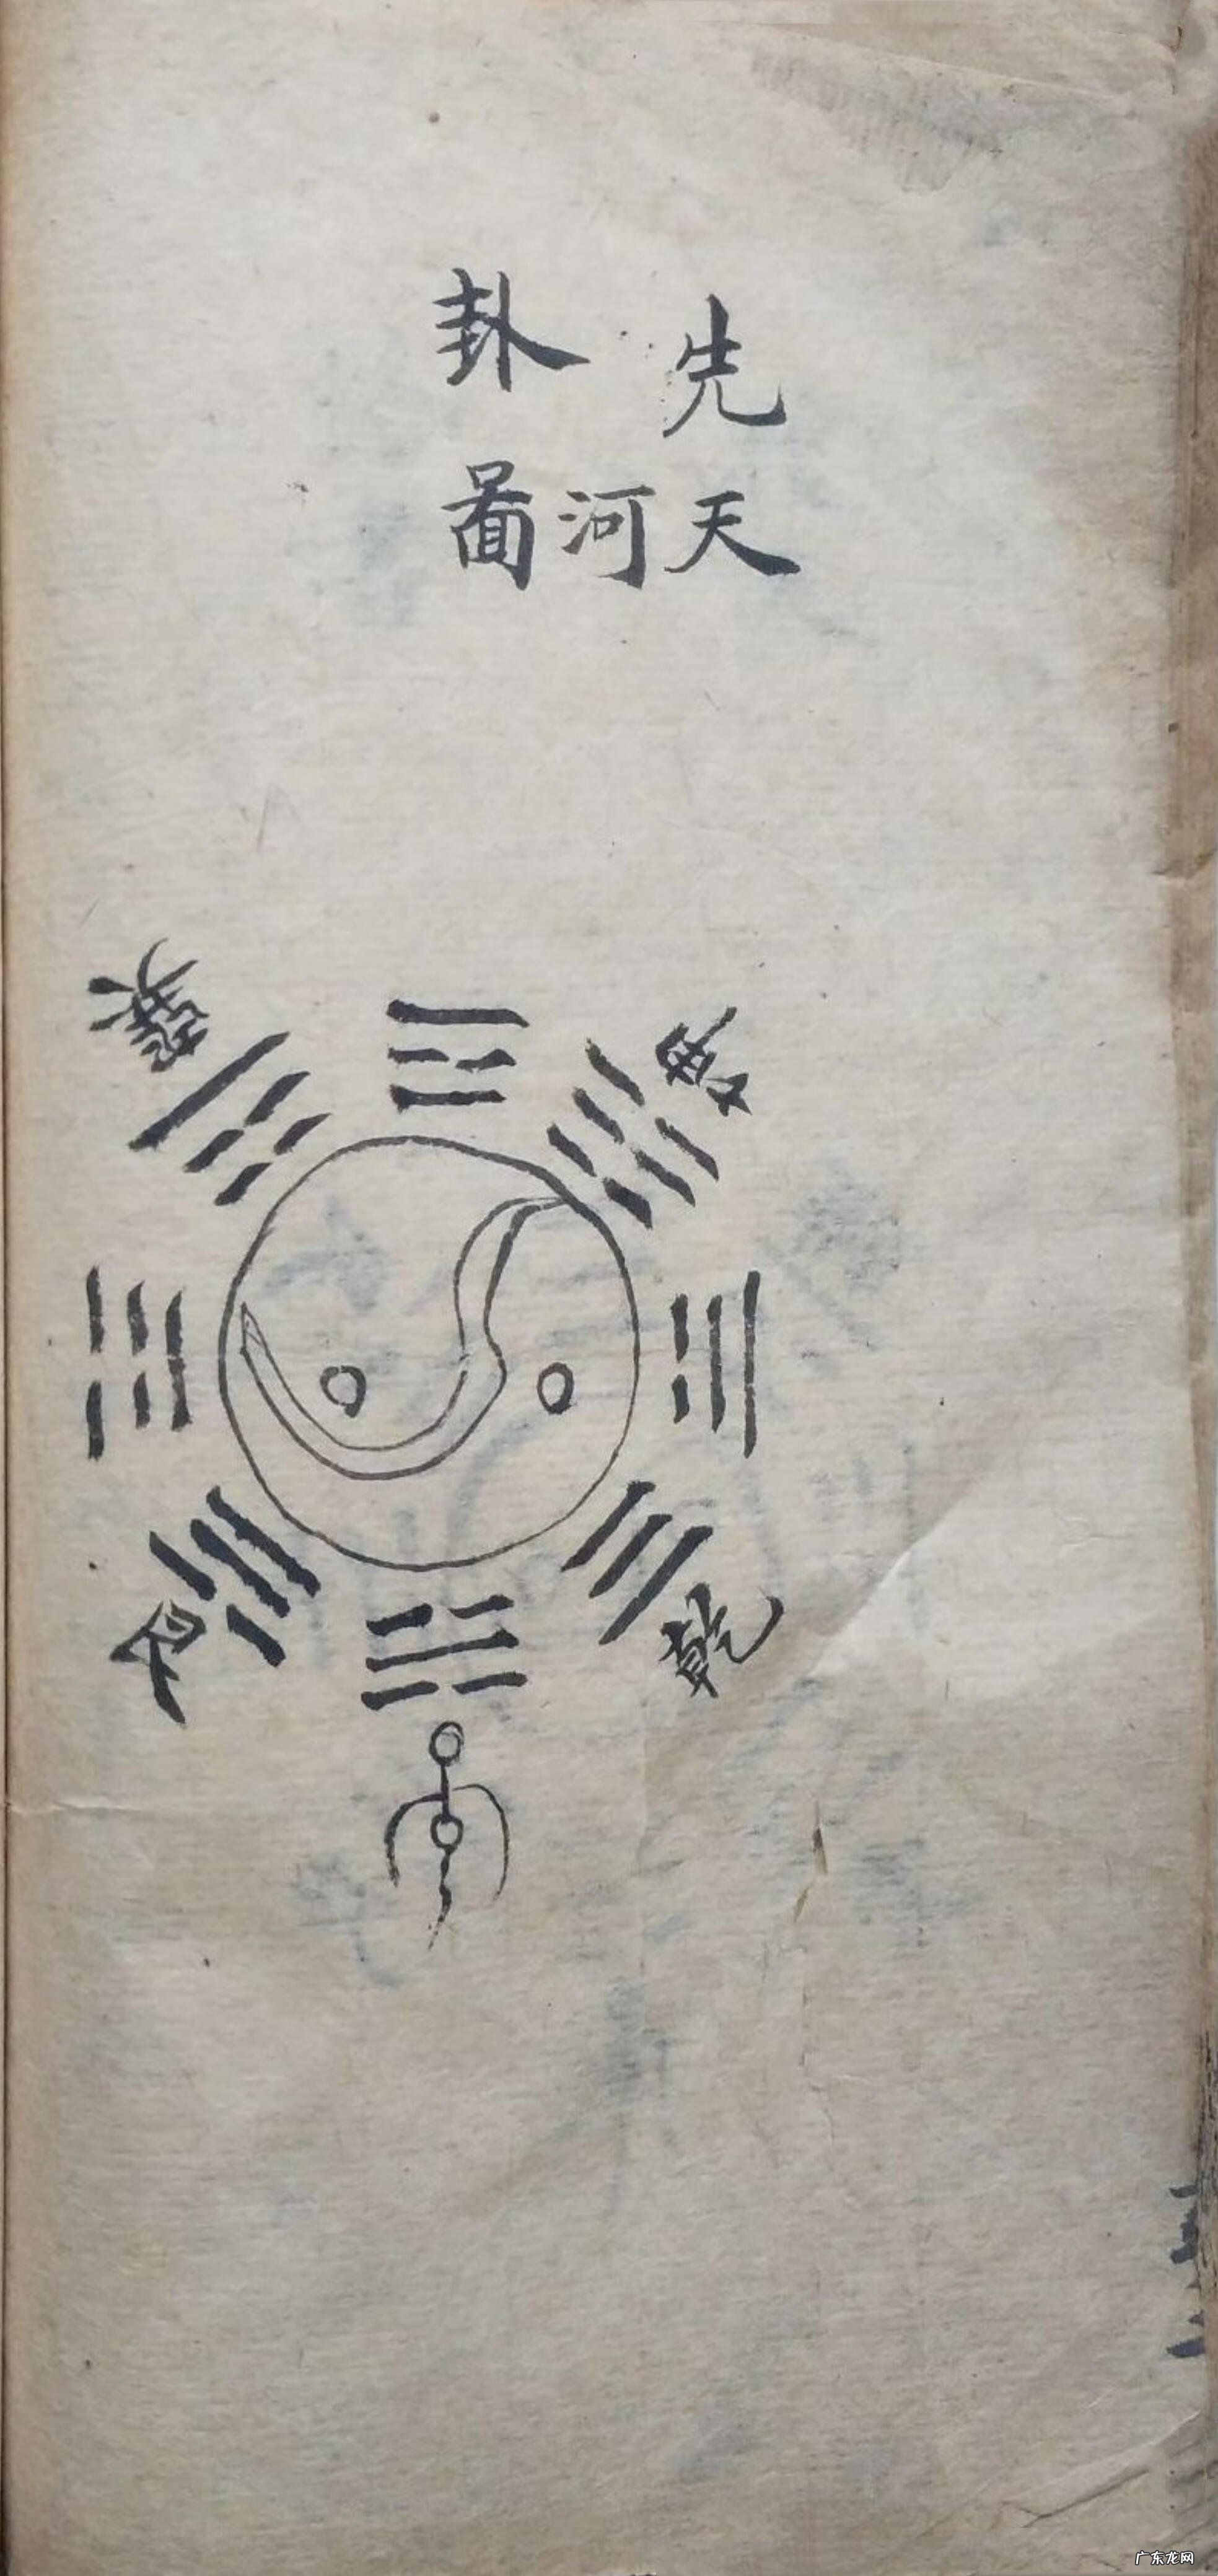 先天
河
卦啚
巽
乾
广东龙网